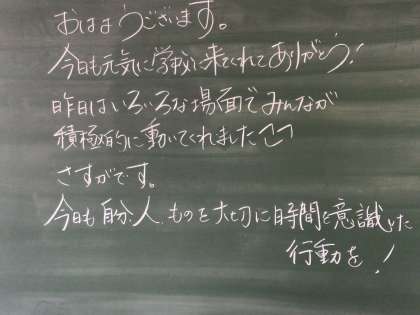 おはようございます。
今日も元気に学校に来てくれてありがとう!
昨日はいろいろな場面でみんなが
積極的に動いてくれました
さすがです。
今日も自分、人、ものを大切に時間を意識した
行動を!